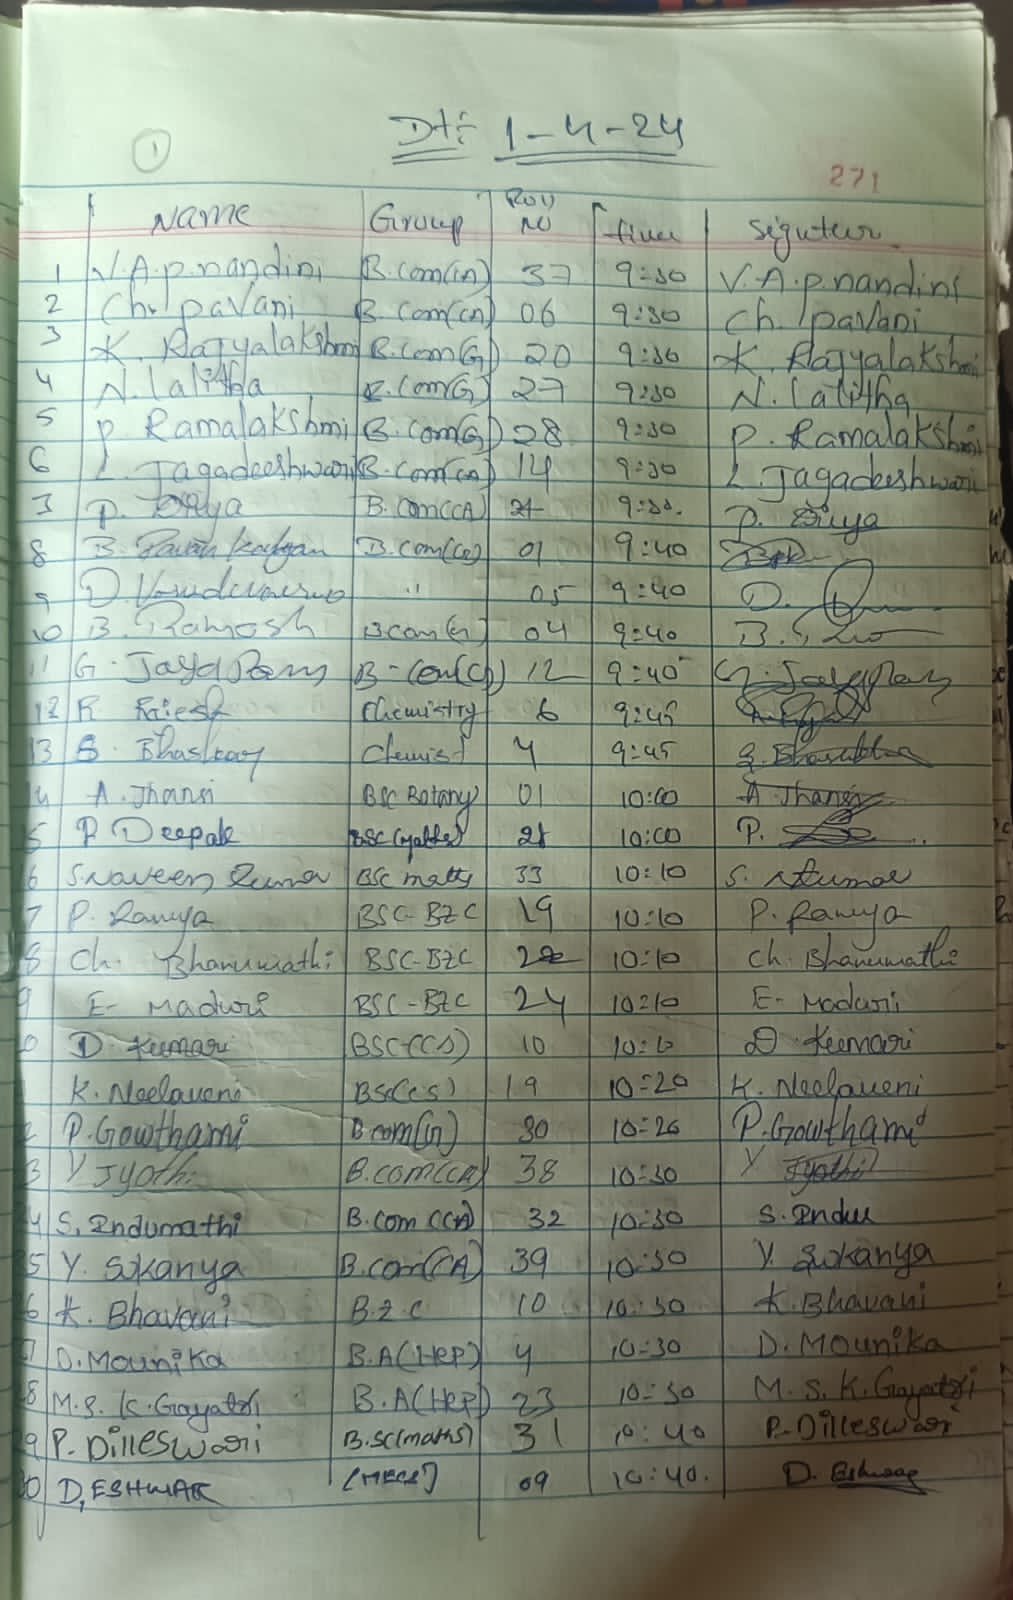 1
Dt: 1-4-24
271
Name Group Roll No time Signuteur
1 V.A.P.nandini B.com(CA) 37 9:30 V.A.P.nandini
2 Ch. pavani B.com(CA) 06 9:30 Ch. pavani
3 K. Rajyalakshmi B.com(G) 20 9:30 K. Rajyalakshmi
4 N. Lalitha B.com(G) 27 9:30 N. Lalitha
5 P. Ramalakshmi B.com(G) 28 9:30 P. Ramalakshmi
6 L. Jagadeeshwari B.com(CA) 14 9:30 L. Jagadeeshwari
P. Divya B.com(CA) 9:30. P. Divya
8 B. Pavan Kalyan B.com(CA) 01 9:40
9 D. '' 05 9:40 D.
10 B. Ramesh Bcom(G) 04 9:40 B.
11 G. Jaya Ram B-com(CA) 12 9:40 G. Jaya Ram
12 R Rajesh Chemistry 6 9:45
13 S. Bhaskar Chemist 4 9:45 S.
4 A. Jhansi BSC Botany 01 10:00 A. Jhansi
5 P Deepak BSC(Maths) 21 10:00 P.
6 S.naveen Kumar BSC maths 33 10:10 S. NKumar
7 P. Ramya BSC-BZC 19 10:10 P. Ramya
8 Ch. Bhanumathi BSC-BZC 10:10 Ch. Bhanumathi
9 E- Maduri BSC-BZC 24 10:10 E- Maduri
0 D. Kumari BSC(CS) 10 D. Kumari
K. Neelaveni BSC(CS) 19 10:20 K. Neelaveni
2 P. Gowthami B.com(CA) 30 10:20 P. Gowthami
3 Y Jyothi B.com(CA) 38 10:30 Y Jyothi
4 S. Indumathi B.com(CA) 32 10:30 S. Indu
5 Y. Sukanya B.com(CA) 39 10:30 Y. Sukanya
6 K. Bhavani BZC 10 10:30 K. Bhavani
7 D. Mounika B.A(HEP) 4 10:30 D. Mounika
8 M.S.K.Gayatri B.A(HEP) 23 10:30 M.S.K.Gayatri
9 P. Dilleswari B.SC(maths) 31 10:40 P. Dilleswari
0 D, ESHWAR (MECS) 09 10:40. D. Eshwar